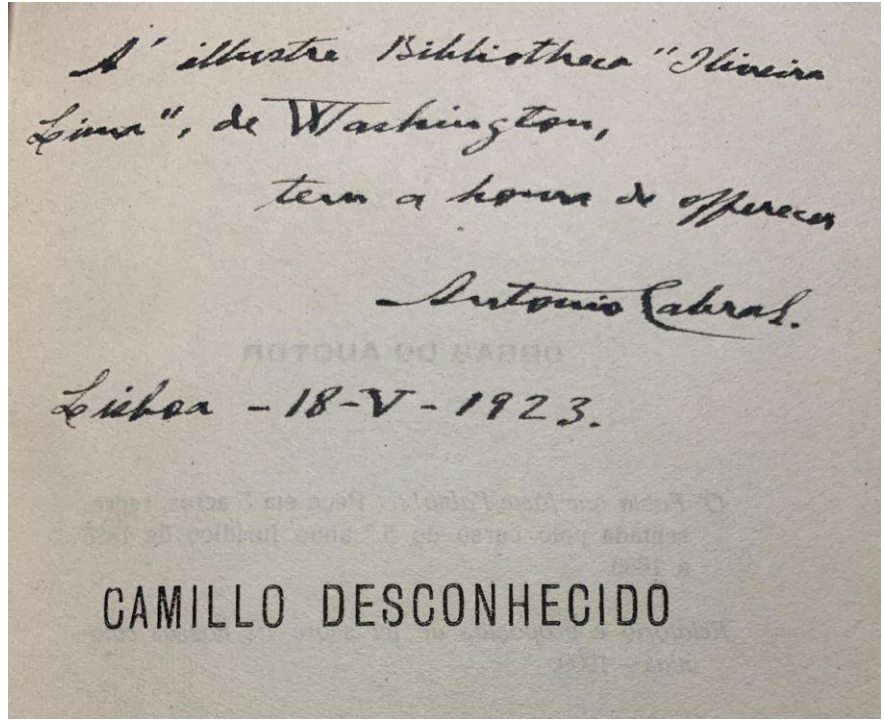 A' illustre Bibliotheca "Oliveira
Lima", de Washington,
tem a honra de offerecer
Antonio Cabral.
Lisboa - 18-V-1923.
CAMILLO DESCONHECIDO